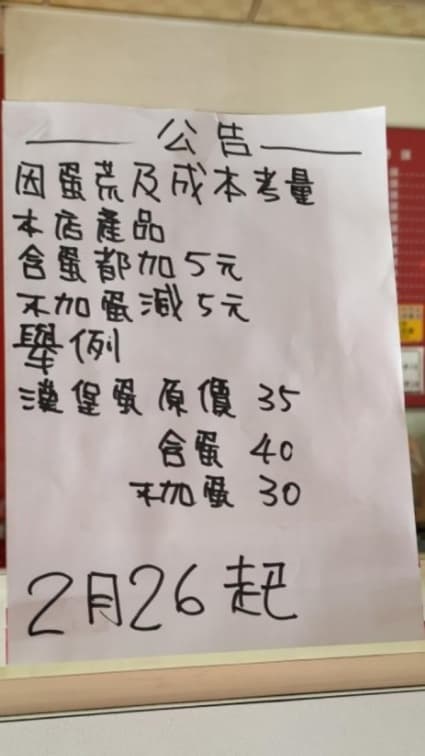 公告
因蛋荒及成本考量
本店產品
含蛋都加5元
不加蛋減5元
舉例
漢堡蛋原價 35
含蛋 40
不加蛋 30
2月26起